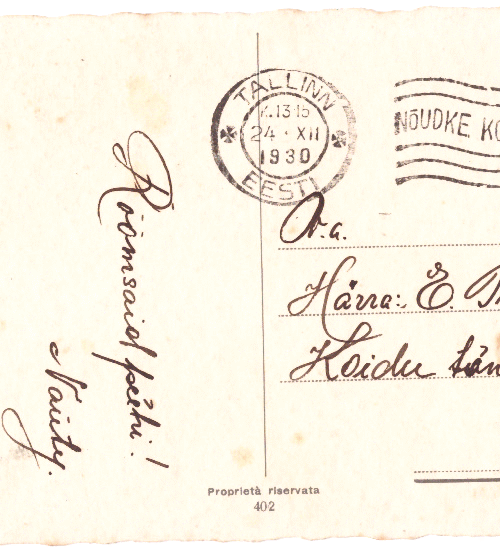 Rõõmsaid pühi!
TALLINN
13 15
24 · XII
1930
EESTI
NÕUDKE
Härra: E.
Koidu tän
Proprietà riservata
402